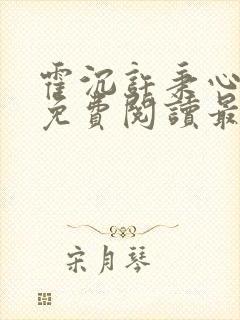 霍沉許秉心
免費閱讀最
宋月琴